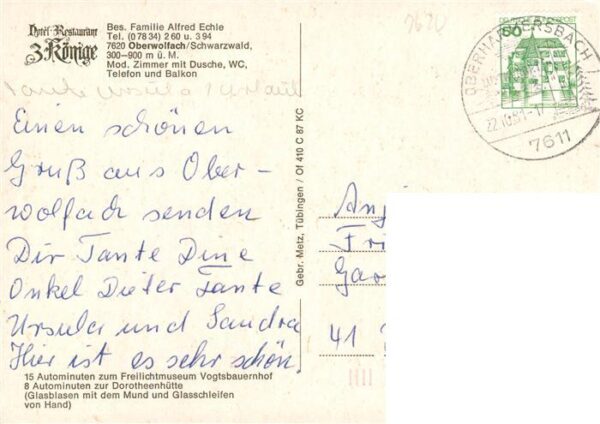 Hotel-Restaurant
3 Könige
Bes. Familie Alfred Echle
Tel. (0 78 34) 2 60 u. 3 94
7620 Oberwolfach/Schwarzwald,
300–900 m ü. M.
Mod. Zimmer mit Dusche, WC,
Telefon und Balkon
Tante Ursula
Einen schönen
Gruß aus Ober-
wolfach senden
Dir Tante Dine
Onkel Dieter Tante
Ursula und Sandra
Hier ist es sehr schön.
15 Autominuten zum Freilichtmuseum Vogtsbauernhof
8 Autominuten zur Dorotheenhütte
(Glasblasen mit dem Mund und Glasschleifen
von Hand)
Gebr. Metz, Tübingen / Of 410 C 87 KC
50
OBERHARMERSBACH
22.10.81-17
7611
41